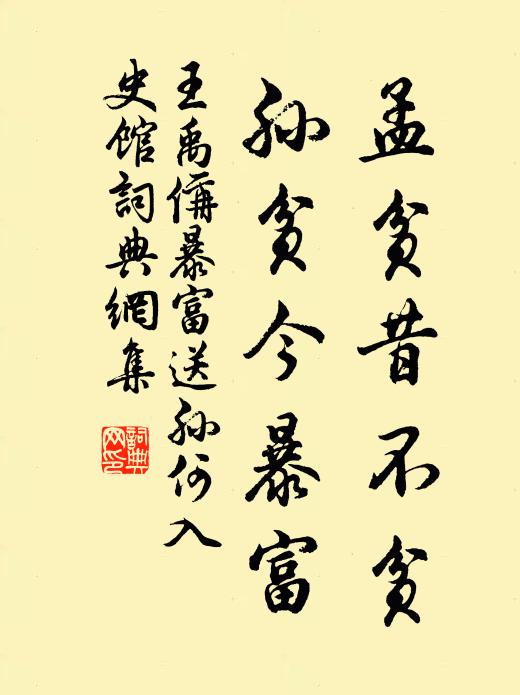 孟貧昔不貧
孫貧今暴富
王禹偁暴富送孫何入
史館詞典網集
詞典
网印